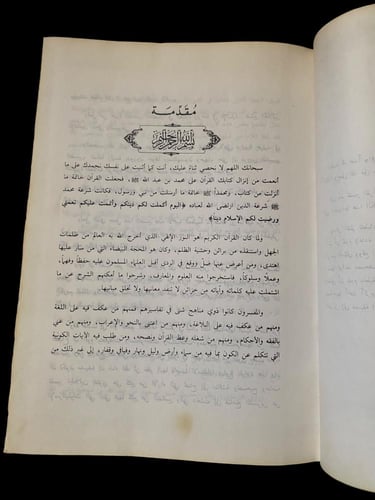 مُقَدِّمَة
بسم الله الرحمن الرحيم
سبحانك اللهم لا نحصي ثناءً عليك، أنت كما أثنيت على نفسك نحمدك على ما
أنعمت من إنزال كتابك القرآن على محمد بن عبد الله ﷺ، فجعلت القرآن خاتمة ما
أنزلت من كتاب، ومحمداً ﷺ خاتمة ما أرسلت من نبي ورسول، فكانت شرعة محمد
ﷺ شرعة الدين ارتضى الله لعباده ﴿اليوم أكملت لكم دينكم وأتممت عليكم نعمتي
ورضيت لكم الإسلام ديناً﴾.
ولما كان القرآن الكريم هو النور الإلهي الذي أخرج الله به العالم من ظلمات
الجهل واستنقذه من براثن وحشية الظلم، وكان هو المحجة البيضاء التي من سار عليها
اهتدى، ومن أعرض عنها ضل ووقع في الردى أقبل العلماء المسلمون عليه حفظاً وفهماً،
وعملاً وسلوكاً، فاستخرجوا منه العلوم والمعارف، وشرحوا ما أحكمه الشرع من ما
اشتملت عليه كلماته وآياته من خزائن لا تنفد معانيها ولا تخلق مبانيها.
والمفسرون كانوا ذوي مناهج شتى في تفاسيرهم فمنهم من عكف فيه على اللغة
ومنهم من عكف فيه على البلاغة، ومنهم من اعتنى بالنحو والإعراب، ومنهم من عني
بالفقه والأحكام، ومنهم من شغله وعظ القرآن ونصحه، ومن طلب فيه الآيات الكونية
التي تتكلم عن الكون بما فيه من سماء وأرض وليل ونهار وفيافي وقفار، إلى غير ذلك من